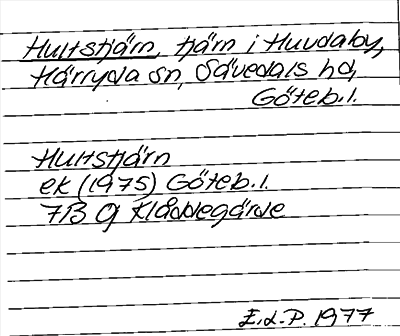 Hultstjärn, tjärn i Huvdaby,
Härryda sn, Sävedals hd,
Göteb.l.
Hultstjärn
ek (1975) Göteb.l.
7B 0j Kläddegärde
E.L.P. 1977